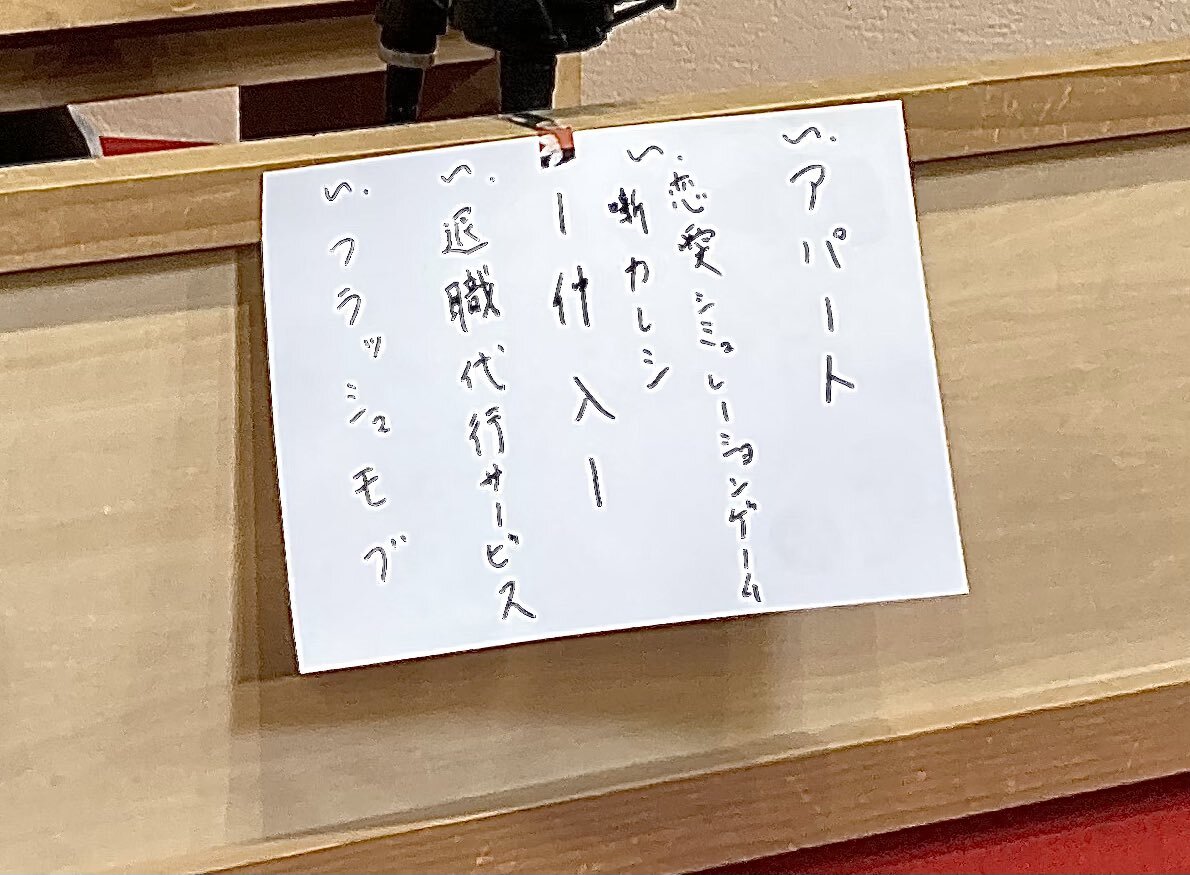 い. アパート
い. 恋愛シミュレーションゲーム
噺カレシ
ー仲入ー
い. 退職代行サービス
い. フラッシュモブ